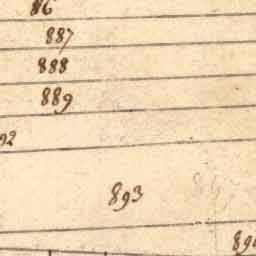 86
887
888
889
92
893
89